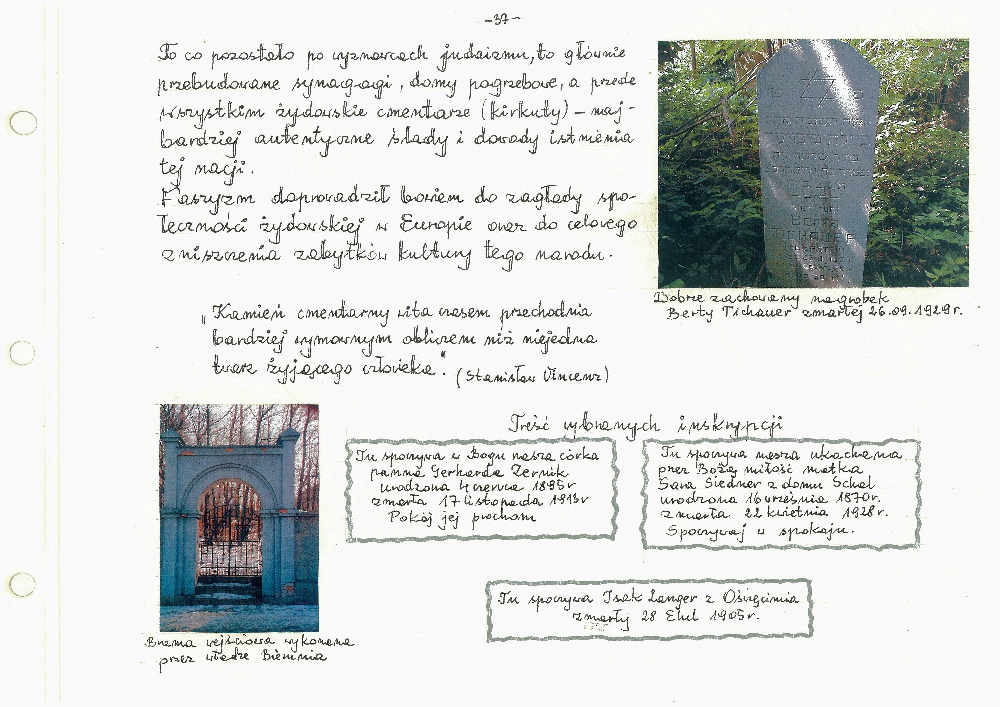 -37-
To co pozostało po wyznawcach judaizmu, to głównie
przebudowane synagogi, domy pogrzebowe, a przede
wszystkim żydowskie cmentarze (kirkuty) - naj-
bardziej autentyczne ślady i dowody istnienia
tej nacji.
Faszyzm doprowadził bowiem do zagłady spo-
łeczności żydowskiej w Europie oraz do celowego
zniszczenia zabytków kultury tego narodu.
Dobrze zachowany nagrobek
Berty Tichauer zmarłej 26.09.1929r.
„Kamień cmentarny wita czasem przechodnia
bardziej wymownym obliczem niż niejedna
twarz żyjącego człowieka". (Stanisław Vincenz)
Treść wybranych inskrypcji
Tu spoczywa w Bogu nasza córka
panna Gerharda Zernik
urodzona 4 czerwca 1895r
zmarła 17 listopada 1913r
Pokój jej prochom
Tu spoczywa nasza ukochana
przez Bożą miłość matka
Sara Siedner z domu Schal
urodzona 16 września 1870r.
zmarła 22 kwietnia 1928r.
Spoczywaj w spokoju.
Tu spoczywa Isak Langer z Oświęcimia
zmarły 28 Elul 1905r.
Brama wejściowa wykonana
przez władze Bierunia